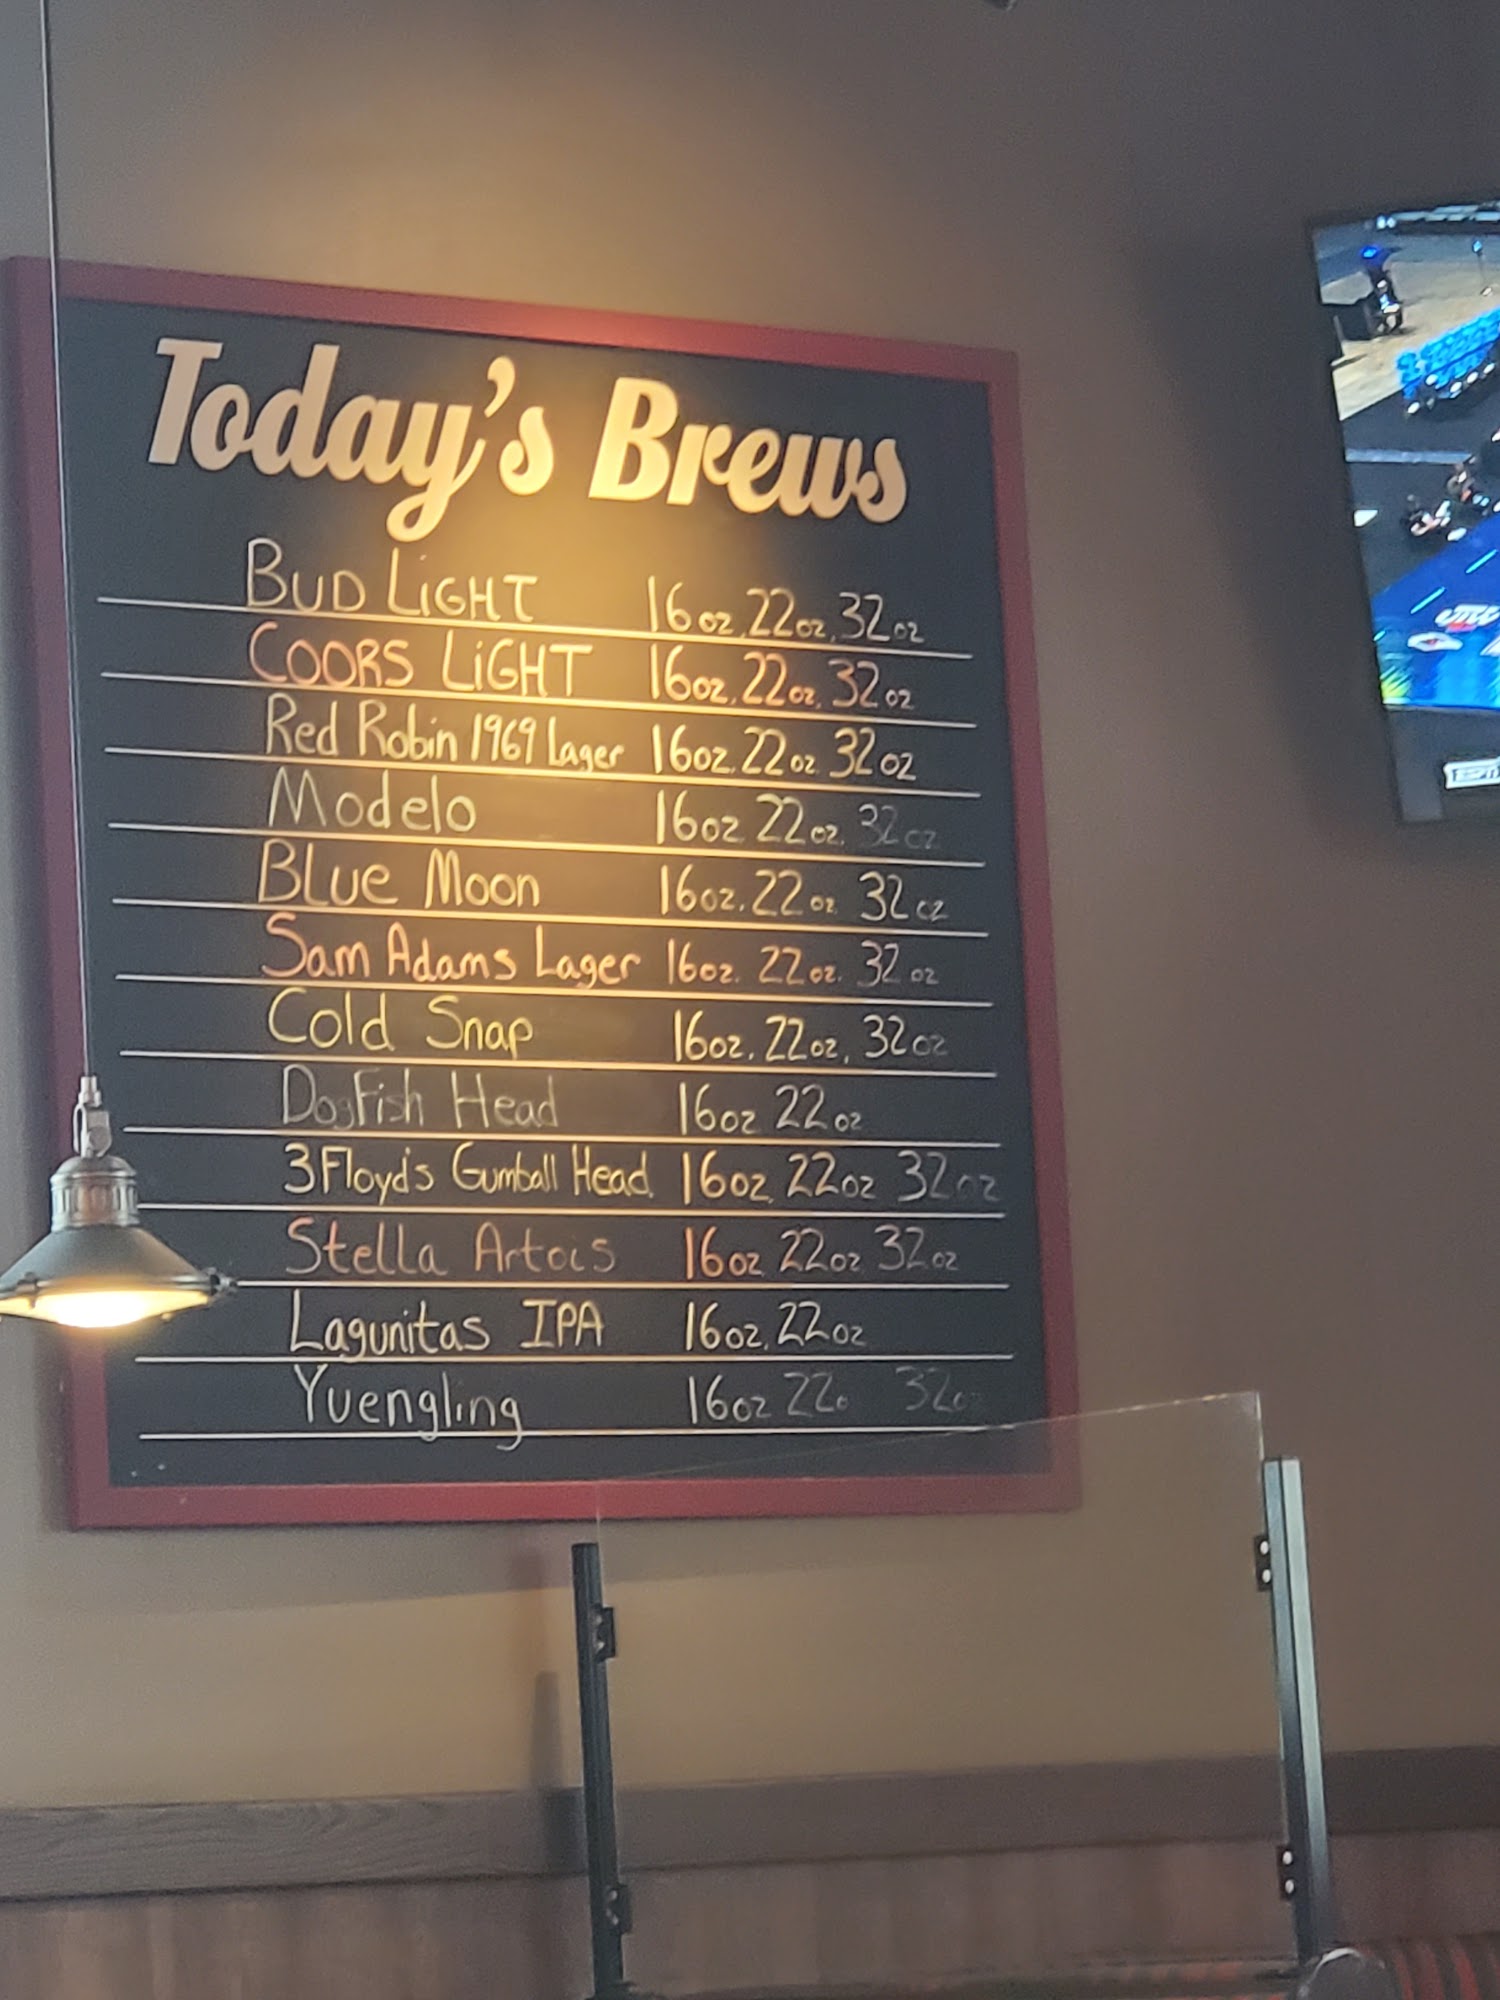 Today's Brews
BUD LiGHT 16oz, 22oz, 32oz
COORS LiGHT 16oz, 22oz, 32oz
Red Robin 1969 Lager 16oz, 22oz 32oz
Modelo 16oz 22oz, 32oz
BLUe Moon 16oz, 22oz 32oz
Sam Adams Lager 16oz. 22oz. 32oz
Cold Snap 16oz, 22oz, 32oz
DogFish Head 16oz 22oz
3Floyd's Gumball Head 16oz, 22oz 32oz
Stella Artois 16oz 22oz 32oz
Lagunitas IPA 16oz, 22oz
Yuengling 16oz 22o 32oz